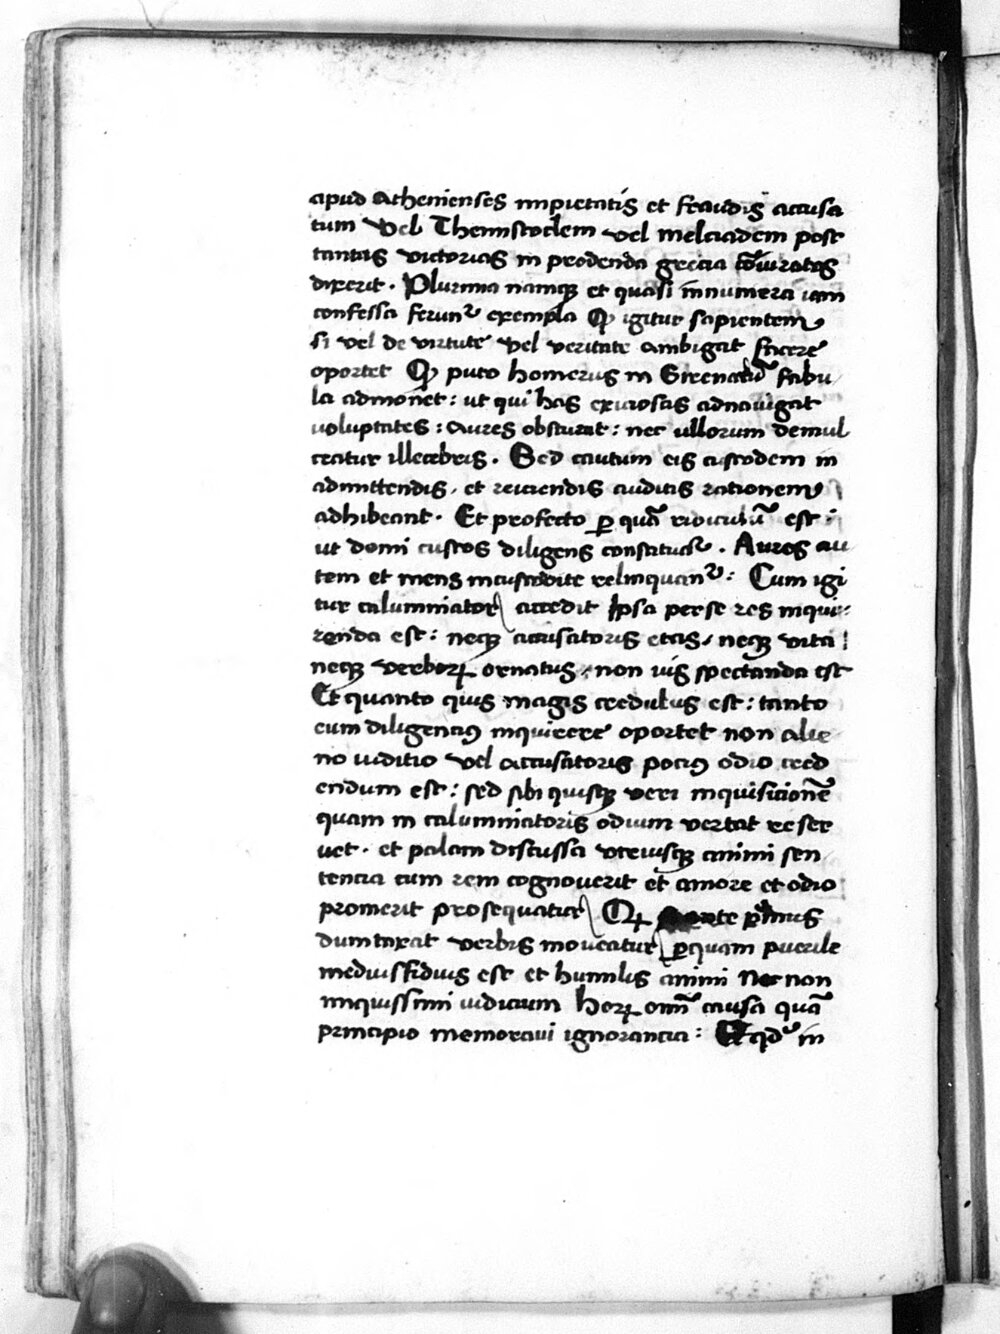 apud Athenienses impietatis et fraudis accusa
tum vel Themistoclem vel melciadem post
tantas victorias in prodenda grecia cōiuratos
dixerit. Plurima namqꝫ et quasi innumera iam
confessa ferunᷣ exempla Qͥ igitur sapientem
si vel de virtute vel veritate ambigat facere
oportet Qͥ puto homerus in Sirenarū fabu
la admonet: ut qui has exiciosas adnavigat
voluptates: aures obsturat: nec ullorum demul
ceatur illecebris. Sed cautum eis custodem in
admittendis, et reiciendis auditis rationem
adhibeant. Et profecto ꝑ quā ridiculū est:
ut domi custos diligens constituaᷣ. Aures au
tem et mens incustodite relinquanᷣ: Cum igi
tur calumniator accedit Ipsa per se res inqui:
renda est: neqꝫ accusatoris etas, neqꝫ vita
neqꝫ verboꝝ ornatus, non uis spectanda est
Et quanto quis magis credulus est: tanto
eum diligenciꝰ inquirere oportet non alie
no iuditio vel accusatoris pociꝰ odio cred
endum est: sed sibi quisqꝫ veri inquisicionē
quam in calumniatoris odium vertat reser
uet. et palam discussa utriusqꝫ animi sen
tencia cum rem cognoverit et amore et odio
promerit prosequatur
dumtaxat verbis moveatur ꝑquam puerile
mediusfidius est et humilis animi Nec non
iniquissimi iudicium hoꝝ oīm causa quā
principio memoravi ignorancia: in